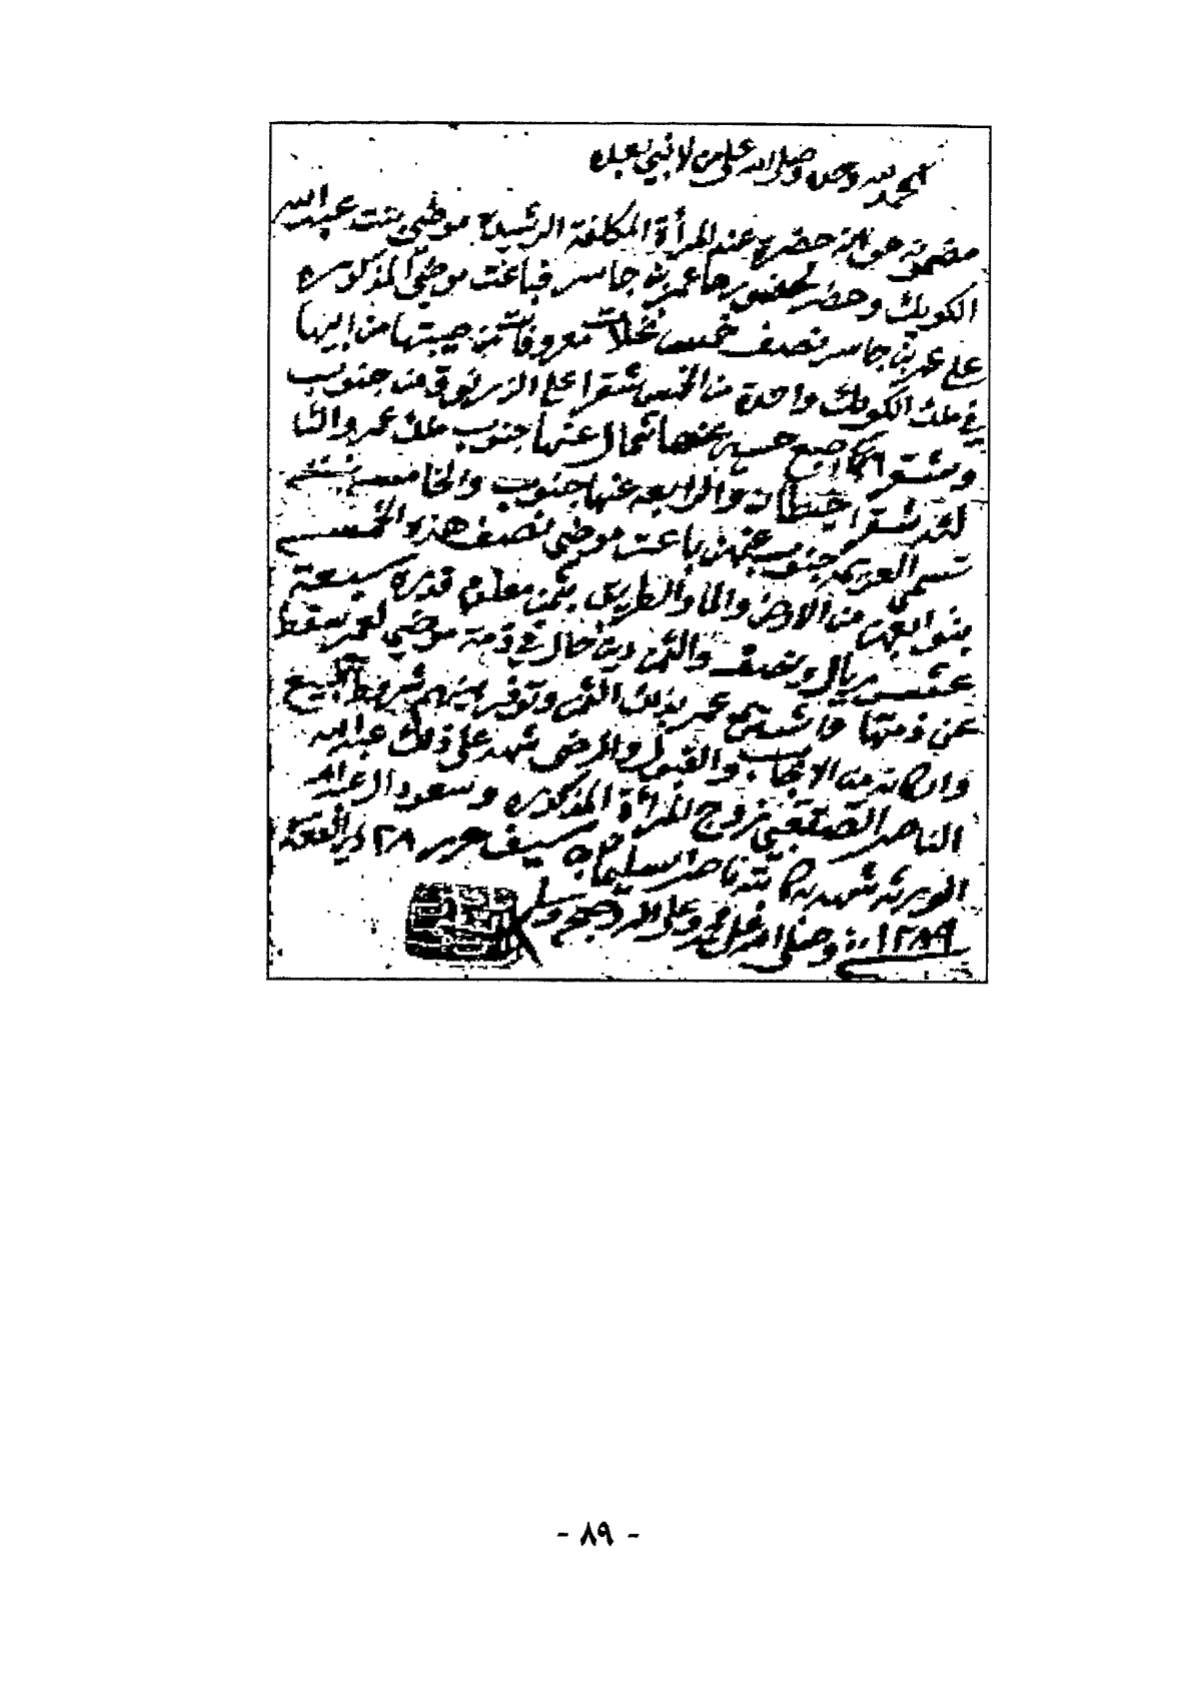 الحمد لله وحده وصلى الله على من لا نبي بعده
مضمونه هو انه حضر عندي المرأة المكلفة الرشيده موضي بنت عبدالله
الكويك وحضر لحضورها عمر بن جاسر فباعت موضي المذكوره
على عمر بن جاسر نصف خمس نخلات معروفات من صيبتها من ابيها
في ملك الكويك واحدة من الخمس شقرا على الزرنوق من جنوب
وشقرا عنها شمال عنها جنوب ملك عمر والثا
لثه شقرا والرابعه عنها جنوب والخامسه
تسمى جنوب عنهن باعت موضي نصف هذه الخمس
بتوابعهن من الارض والما والطريق بثمن معلوم قدره سبعة
عشر ريال ونصف والثمن دين حال في ذمة موضي لعمر سقط
عن ذمتها عمر بذلك الثمن وتوفر بينهم شروط البيع
واركانه من الايجاب والقبول والرضى شهد على ذلك عبدالله
الناصر الصقعبي زوج المرأة المذكوره وسعود العبدالله
شهد به كاتبه ناصر السليمان بن سيف حرر ٢٨ ذي القعدة
١٢٨٩ وصلى الله على محمد وعلى اله وصحبه وسلم
- ٨٩ -